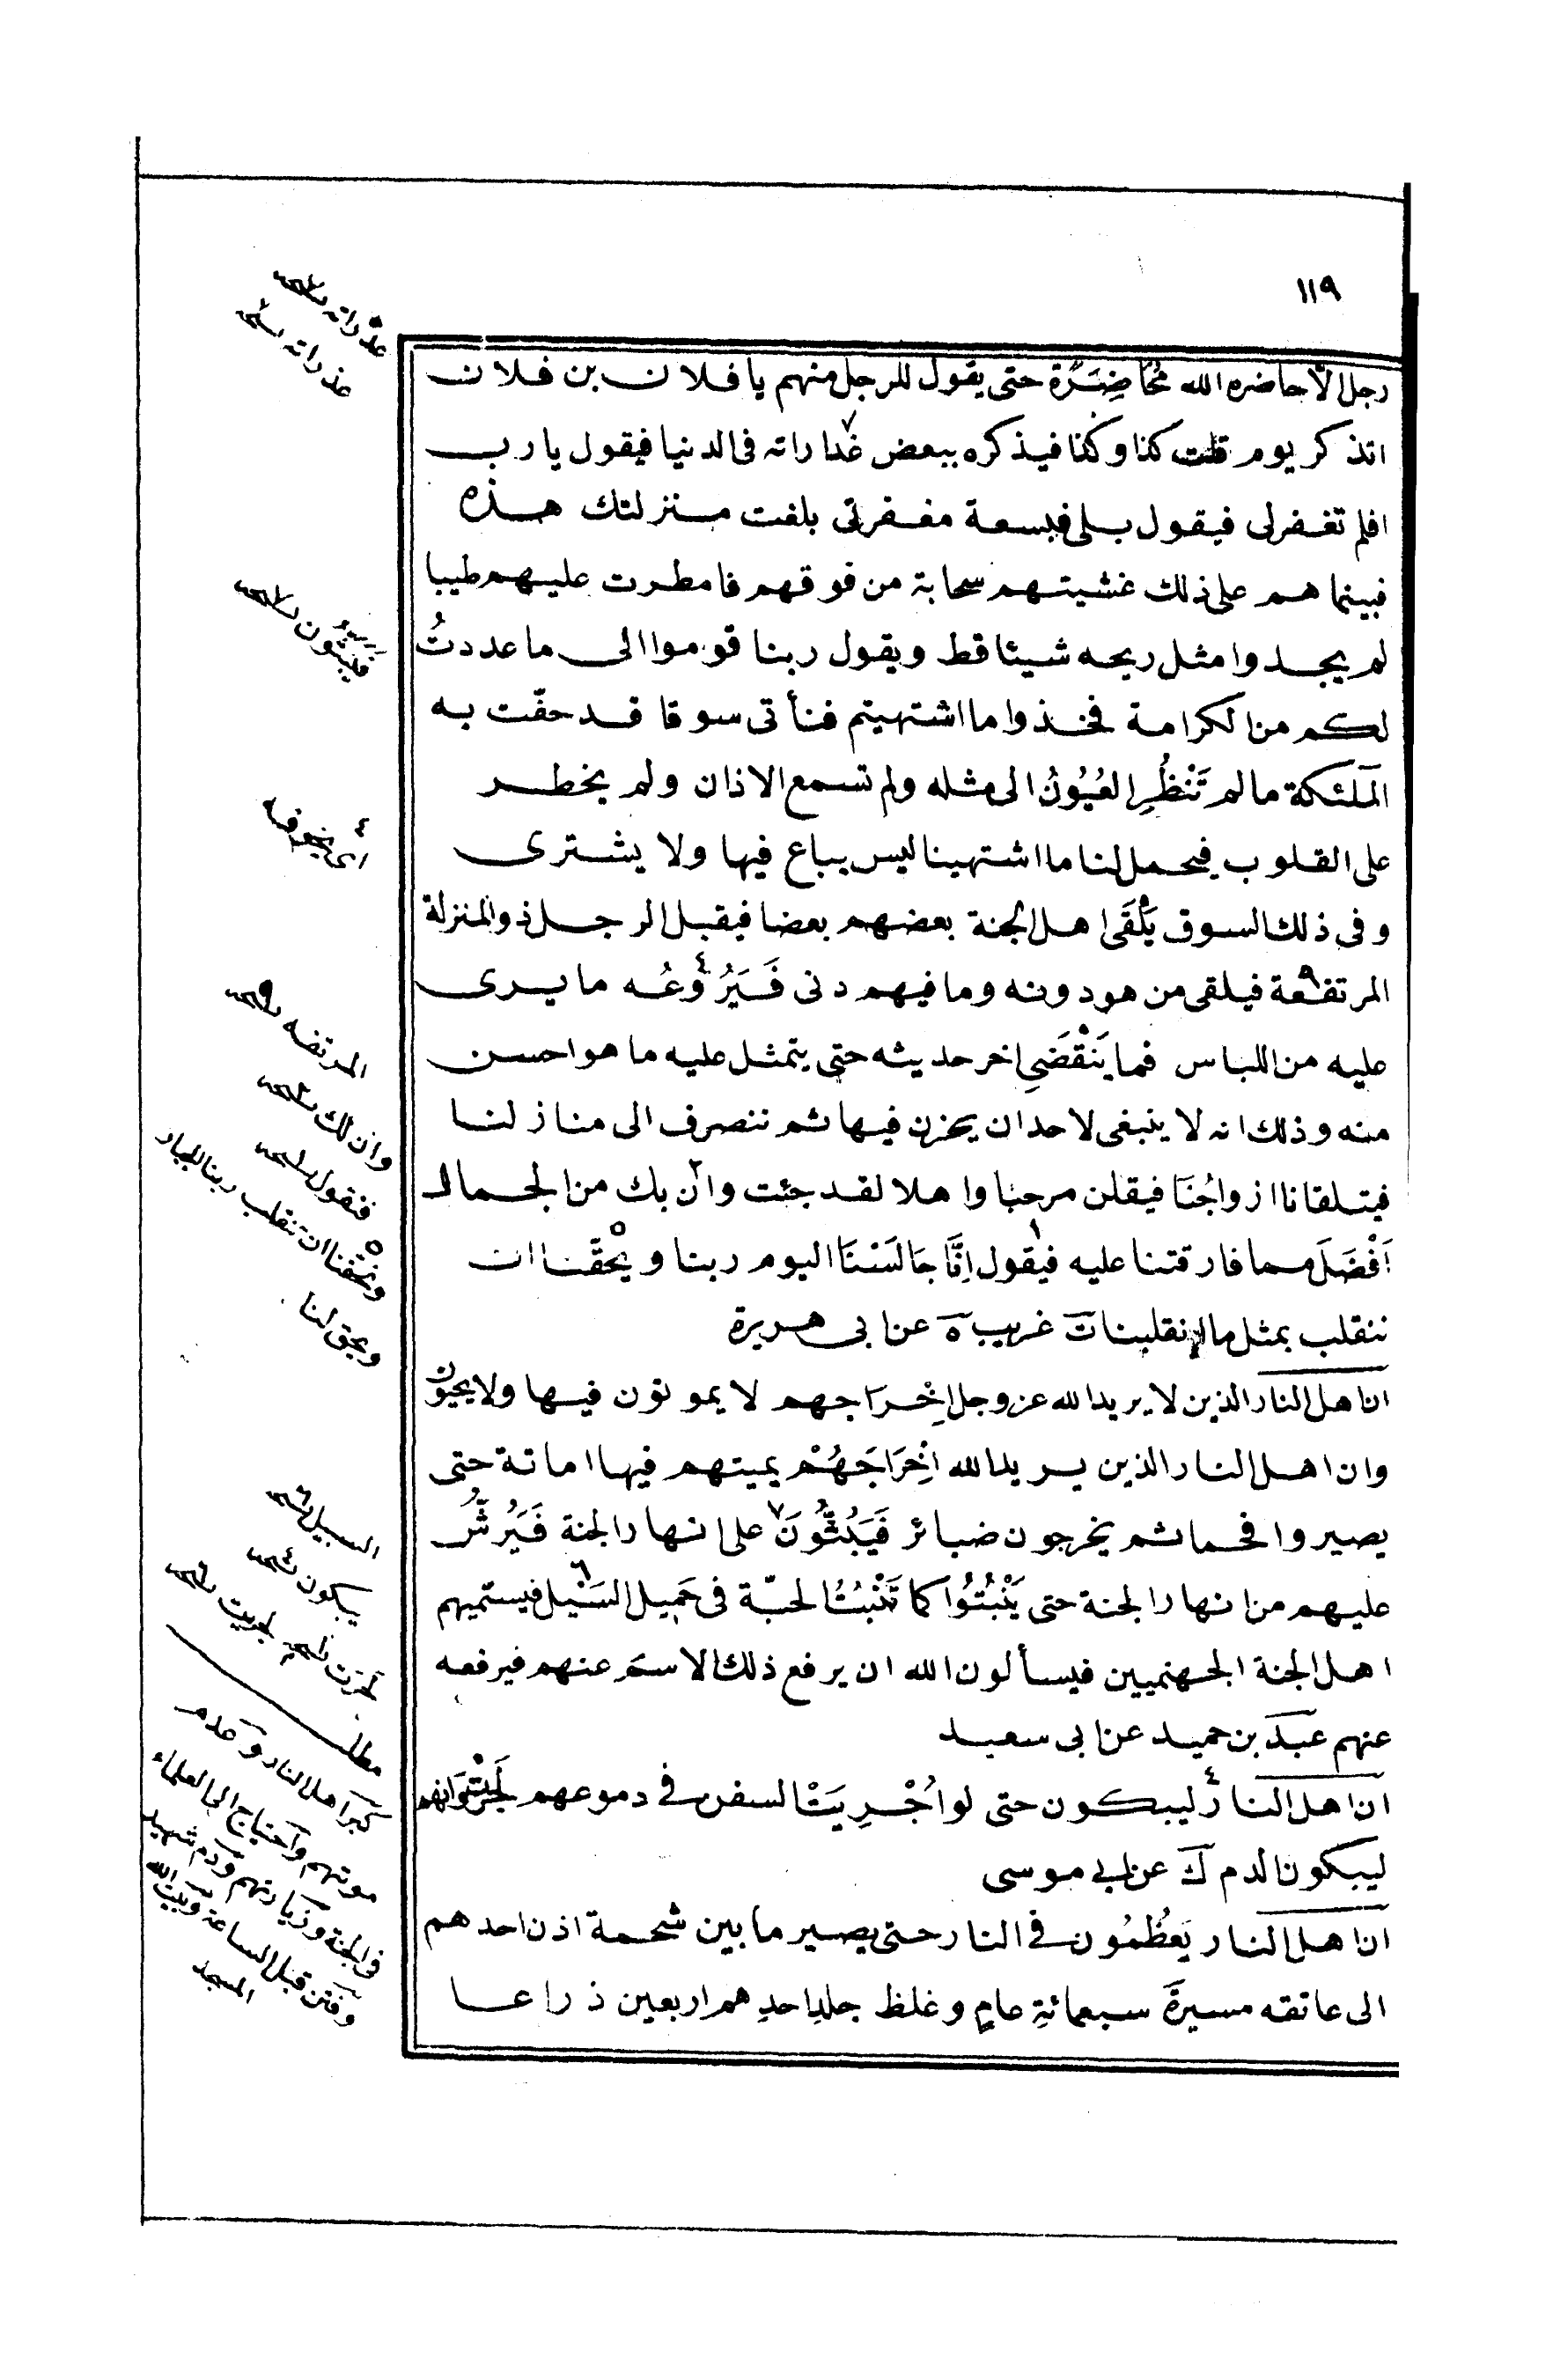 ١١٩
رجل الّا حاضره الله مُحَاضَرَة حتى يقول للرجل منهم يا فلان بن فلان
اتذكر يوم قلت كذا وكذا فيذكره ببعض غداراته فى الدنيا فيقول يا رب
افلم تغفرلى فيقول بلى فبسعة مغفرتى بلغت منزلتك هذه
فبينما هم على ذلك غشيتهم سحابة من فوقهم فامطرت عليهم طيبا
لم يجدوا مثل ريحه شيئا قط ويقول ربنا قوموا الى ما عددتُ
لكم من الكرامة فخذوا ما اشتهيتم فنأتى سوقا قد حفّت به
الملئكة ما لم تَنْظُرِ العُيُونُ الى مثله ولم تسمع الاذان ولم يخطر
على القلوب فيحمل لنا ما اشتهينا ليس يباع فيها ولا يشترى
وفى ذلك السوق يَلْقَى اهل الجنة بعضهم بعضا فيقبل الرجل ذو المنزلة
المرتفعة فيلقى من هو دونه وما فيهم دنى فَيَرُوعُه ما يرى
عليه من اللباس فما يَنْقَضَى اخر حديثه حتى يتمثل عليه ما هو احسن
منه وذلك انه لا ينبغى لاحد ان يحزن فيها ثم ننصرف الى منازلنا
فيتلقانا ازواجُنَا فيقلن مرحبا واهلا لقد جئت وان بك من الجمال
اَفْضَلَ مما فارقتنا عليه فيقول اِنَّا جَالَسْنَا اليوم ربنا ويحْقّنا ان
ننقلب بمثل ما انقلبنا ت غريب ه عن ابى هريرة
ان اهل النار الذين لا يريد الله عز وجل اِخْرَاجهم لا يموتون فيها ولا يحيون
وان اهل النار الذين يريد الله اخْرَاجَهُمْ يميتهم فيها اماتة حتى
يصيروا فحما ثم يخرجون ضبائر فَيَبُثُّونَ على انهار الجنة فَيُرَشُّ
عليهم من انهار الجنة حتى يَنْبُتُوا كما تَنْبُتُ الحبّة فى حَمِيل السَيْل فيسمّيهم
اهل الجنة الجهنميين فيسألون الله ان يرفع ذلك الاسم عنهم فيرفعه
عنهم عبد بن حميد عن ابى سعيد
ان اهل النار ليبكون حتى لو اُجْرِيَتْ السفن فى دموعهم لجرت وانهم
ليبكون الدم ك عن ابى موسى
ان اهل النار يَعْظُمُون فى النار حتى يصير ما بين شحمة اذن احدهم
الى عاتقه مسيرةَ سبعمائةِ عامٍ وغلظ جلدِ احدِهم اربعين ذراعا
غدراته
عذراته
فيبثون
اى يخوفه
المرتفعه
وان لك
فنقول
ويحقنا ان ننقلب ربنا الجبار
ويحق لنا
السيل
يبكون
لجرت لجريت
مطلب
كبر اهل النار وعدم
موتهم واحتياج الى العلماء
فى الجنة وزيارتهم ودم شهيد
وفتن قبل الساعة وبيت الله
المسجد